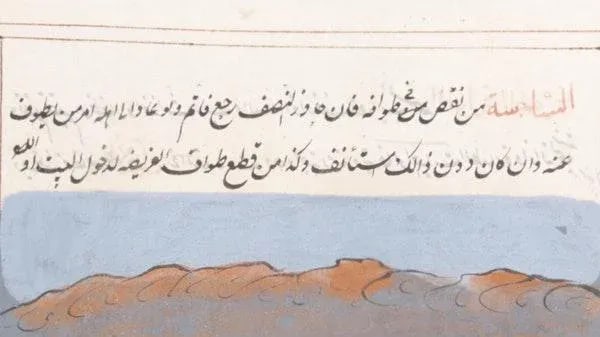 السادسة من نقص من طوافه فان جاوز النصف رجع فاتم ولو عاد الى اهله امر من يطوف
عنه وان كان دون ذالك استأنف وكذا من قطع طواف الفريضه لدخول البيت او